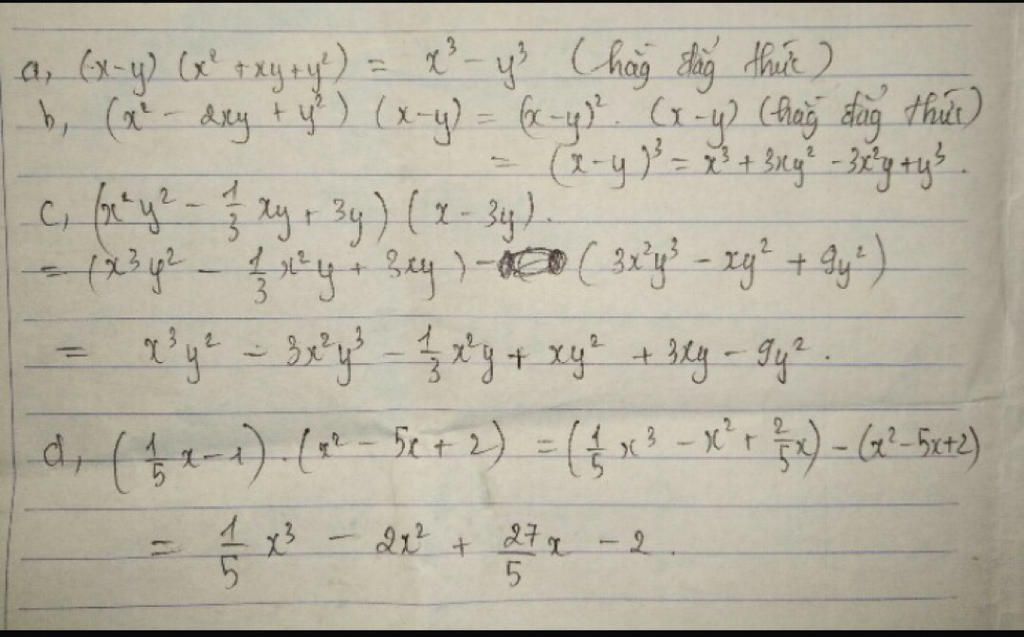 a, (x-y) (x² + xy + y²) = x³ - y³ (hằg đẳg thức)
b, (x² - 2xy + y²) (x-y) = (x-y)². (x-y) (hằg đẳg thức)
= (x-y)³ = x³ + 3xy² - 3x²y + y³.
c, (x²y² - 1/3 xy + 3y) (x - 3y).
= (x³y² - 1/3 x²y + 3xy) - (3x²y³ - xy² + 9y²)
= x³y² - 3x²y³ - 1/3 x²y + xy² + 3xy - 9y².
d, (1/5 x - 1).(x² - 5x + 2) = (1/5 x³ - x² + 2/5 x) - (x² - 5x + 2)
= 1/5 x³ - 2x² + 27/5 x - 2.